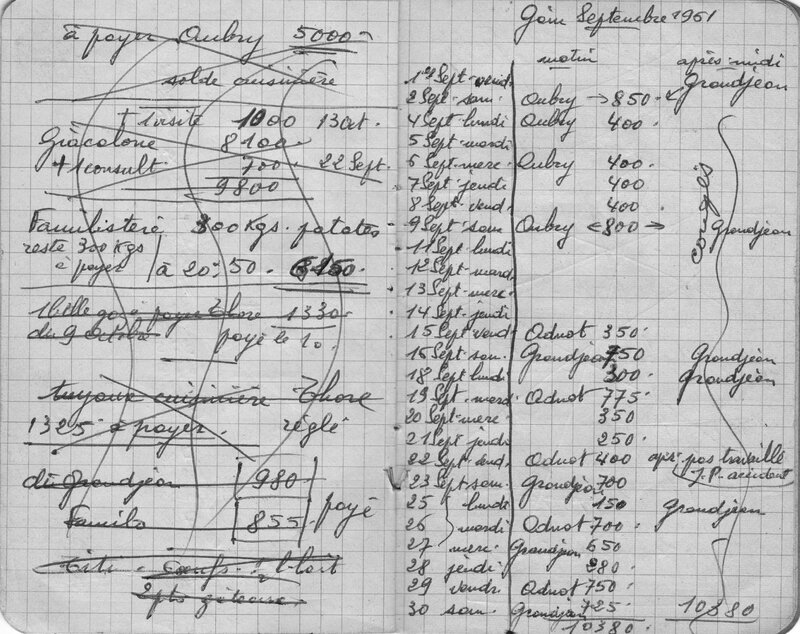 à payer Aubry 5000
solde cuisinière
+ 1 visite 1000 13 oct.
Giacolone 8100
+ 1 consult 700. 22 Sept.
9800
Familistère 300 Kgs. patates
reste 300 Kgs
à payer à 20.50. 6150.
1 Belle à payer Thore 1330
du 9 payé le 10.
tuyaux cuisinière Thore
1325 à payer. réglé
du Grandjean 980
payé
Familo 855
Gain Septembre 1961
matin après-midi
1er Sept. vend. Grandjean
2 Sept. sam. Aubry → 850.
4 Sept. lundi Aubry 400.
5 Sept. mardi
6 Sept. merc. Aubry 400.
7 Sept. jeudi 400
8 Sept. vend. 400
congés
9 Sept. sam Aubry ← 800 → Grandjean
11 Sept. lundi
12 Sept. mard
13 Sept. merc.
14 Sept. jeudi
15 Sept vend. Adnot 350.
16 Sept. sam. Grandjean 750 Grandjean
18 Sept. lundi 300 Grandjean
19 Sept. mard. Adnot 775
20 Sept. merc. 350
21 Sept. jeudi 250
22 Sept. vend. Adnot 400 après. pas travaillé
J.P. accident
23 Sept. sam. Grandjean 700
25 lundi 150 Grandjean
26 mardi Adnot 700.
27 merc. Grandjean 650
28 jeudi 280
29 vendr. Adnot 750
30 sam. Grandjean 725 10380
10380.